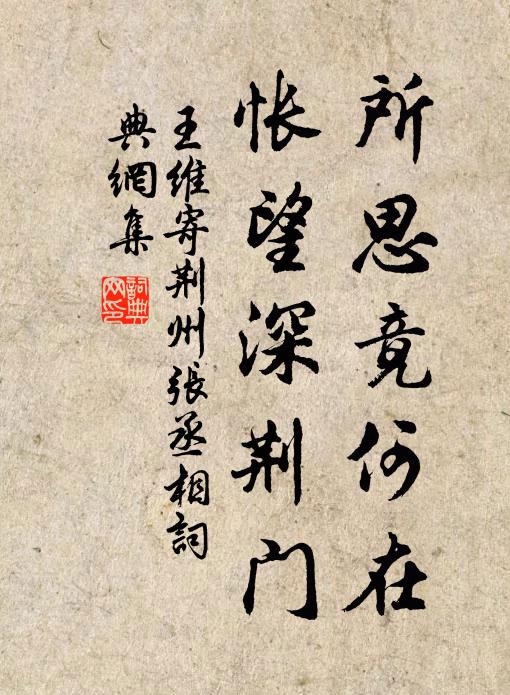 所思竟何在
怅望深荆门
王维寄荆州張丞相詞
典網集
詞典网印